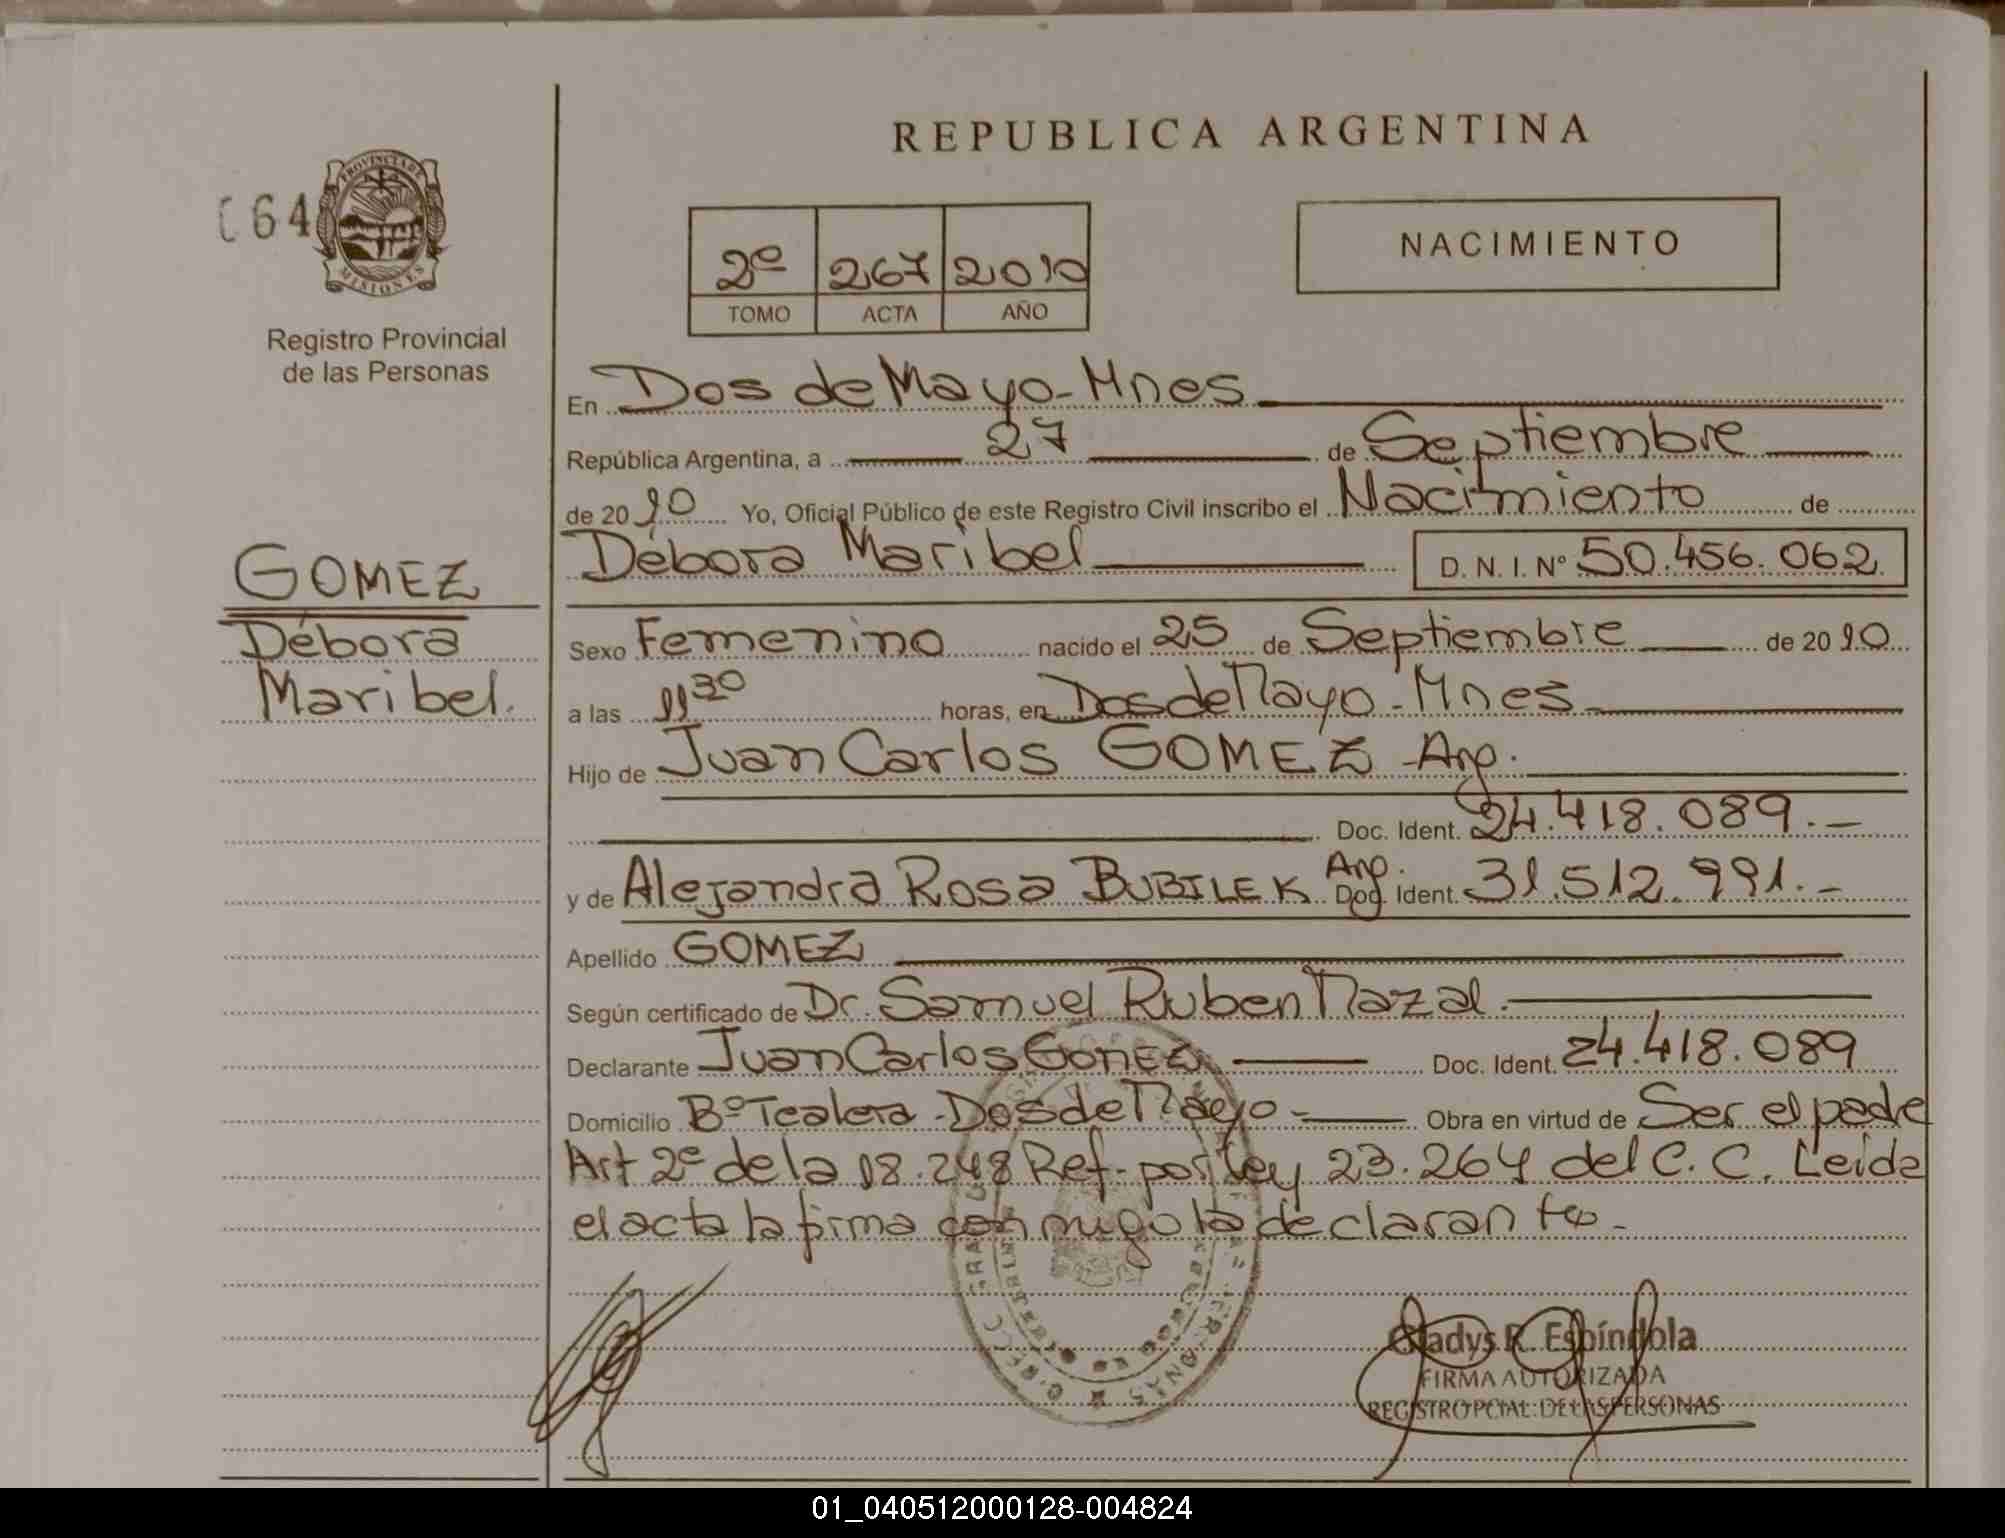 REPUBLICA ARGENTINA
64
PROVINCIA DE
MISIONES
Registro Provincial
de las Personas
2º 267 2010
TOMO ACTA AÑO
NACIMIENTO
En Dos de Mayo - Mnes
República Argentina, a 27 de Septiembre
de 2010 Yo, Oficial Público de este Registro Civil inscribo el Nacimiento de
Débora Maribel D. N. I. Nº 50.456.062
GOMEZ
Débora
Maribel.
Sexo Femenino nacido el 25 de Septiembre de 2010
a las 11 30 horas, en Dos de Mayo - Mnes
Hijo de Juan Carlos GOMEZ - Arg.
Doc. Ident. 24.418.089.-
y de Alejandra Rosa BUBILEK Arg. Doc. Ident. 31.512.991.-
Apellido GOMEZ
Según certificado de Dr. Samuel Ruben Mazal.
Declarante Juan Carlos GOMEZ Doc. Ident. 24.418.089
Domicilio Bº Tealera - Dos de Mayo - Obra en virtud de Ser el padre
Art 2º de la 18.248 Ref. por ley 23.264 del C. C. Leida
el acta la firma conmigo la declarante -
Gladys R. Espíndola
FIRMA AUTORIZADA
REGISTRO PCIAL. DE LAS PERSONAS
01_040512000128-004824